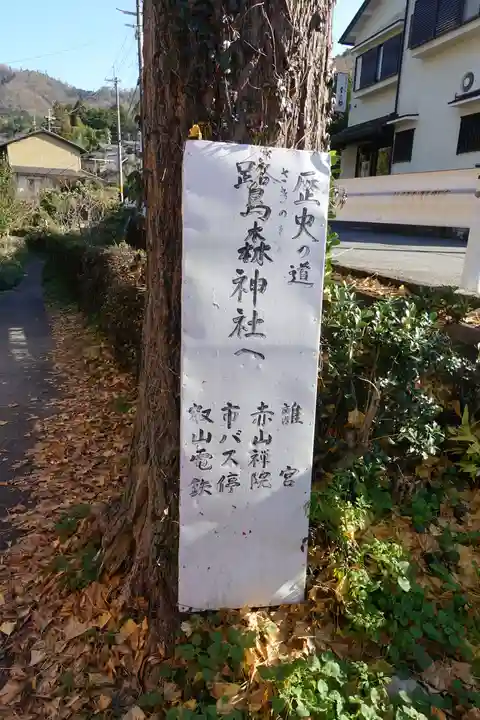 歴史の道
さぎのもり
鷺森神社へ
離宮
赤山禅院
市バス停
叡山電鉄